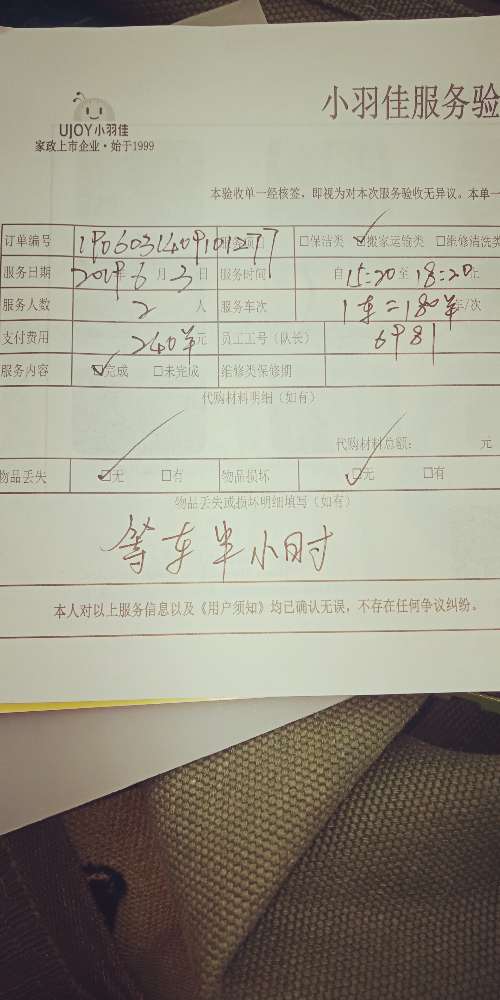 小羽佳服务验
UJOY小羽佳
家政上市企业·始于1999
本验收单一经核签，即视为对本次服务验收无异议。本单一
订单编号 1906031409101277 □保洁类 ☑搬家运输类 □维修清洗类
服务日期 2019年6月3日 服务时间 自15:20至18:20止
服务人数 2人 服务车次 1车=180羊车/次
支付费用 240羊元 员工工号（队长） 6981
服务内容 ☑完成 □未完成 维修类保修期
代购材料明细（如有）
代购材料总额： 元
物品丢失 ☑无 □有 物品损坏 ☑无 □有
物品丢失或损坏明细填写（如有）
等车半小时
本人对以上服务信息以及《用户须知》均已确认无误，不存在任何争议纠纷。